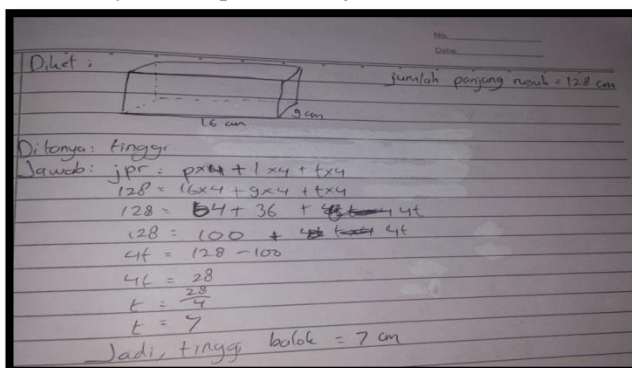 No.
Date
Diket :
jumlah panjang rusuk = 128 cm
16 cm
9 cm
Ditanya : tinggi.
Jawab : jpr = p×4 + l×4 + t×4
128 = 16×4 + 9×4 + t×4
128 = 64 + 36 + 4t
128 = 100 + 4t
4t = 128 - 100
4t = 28
t = 28/4
t = 7
Jadi, tinggi balok = 7 cm